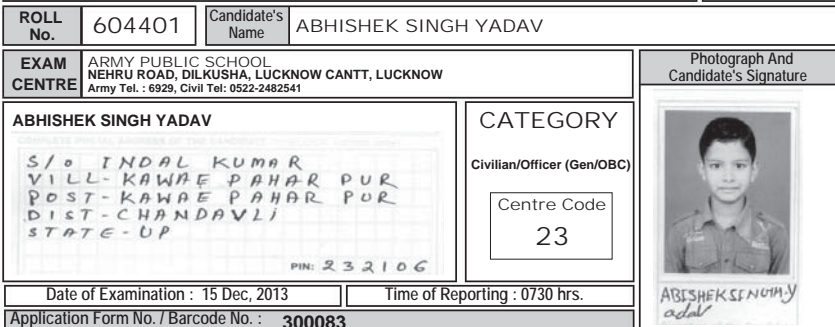 ROLL No. 604401 Candidate's Name ABHISHEK SINGH YADAV
EXAM CENTRE
ARMY PUBLIC SCHOOL
NEHRU ROAD, DILKUSHA, LUCKNOW CANTT, LUCKNOW
Army Tel. : 6929, Civil Tel: 0522-2482541
Photograph And
Candidate's Signature
ABHISHEK SINGH YADAV
S/o INDAL KUMAR
VILL- KAWAE PAHAR PUR
POST- KAWAE PAHAR PUR
DIST- CHANDAVLi
STATE- UP
PIN: 232106
CATEGORY
Civilian/Officer (Gen/OBC)
Centre Code
23
ABISHEKSINGH.Y
adav
Date of Examination : 15 Dec, 2013
Time of Reporting : 0730 hrs.
Application Form No. / Barcode No. : 300083